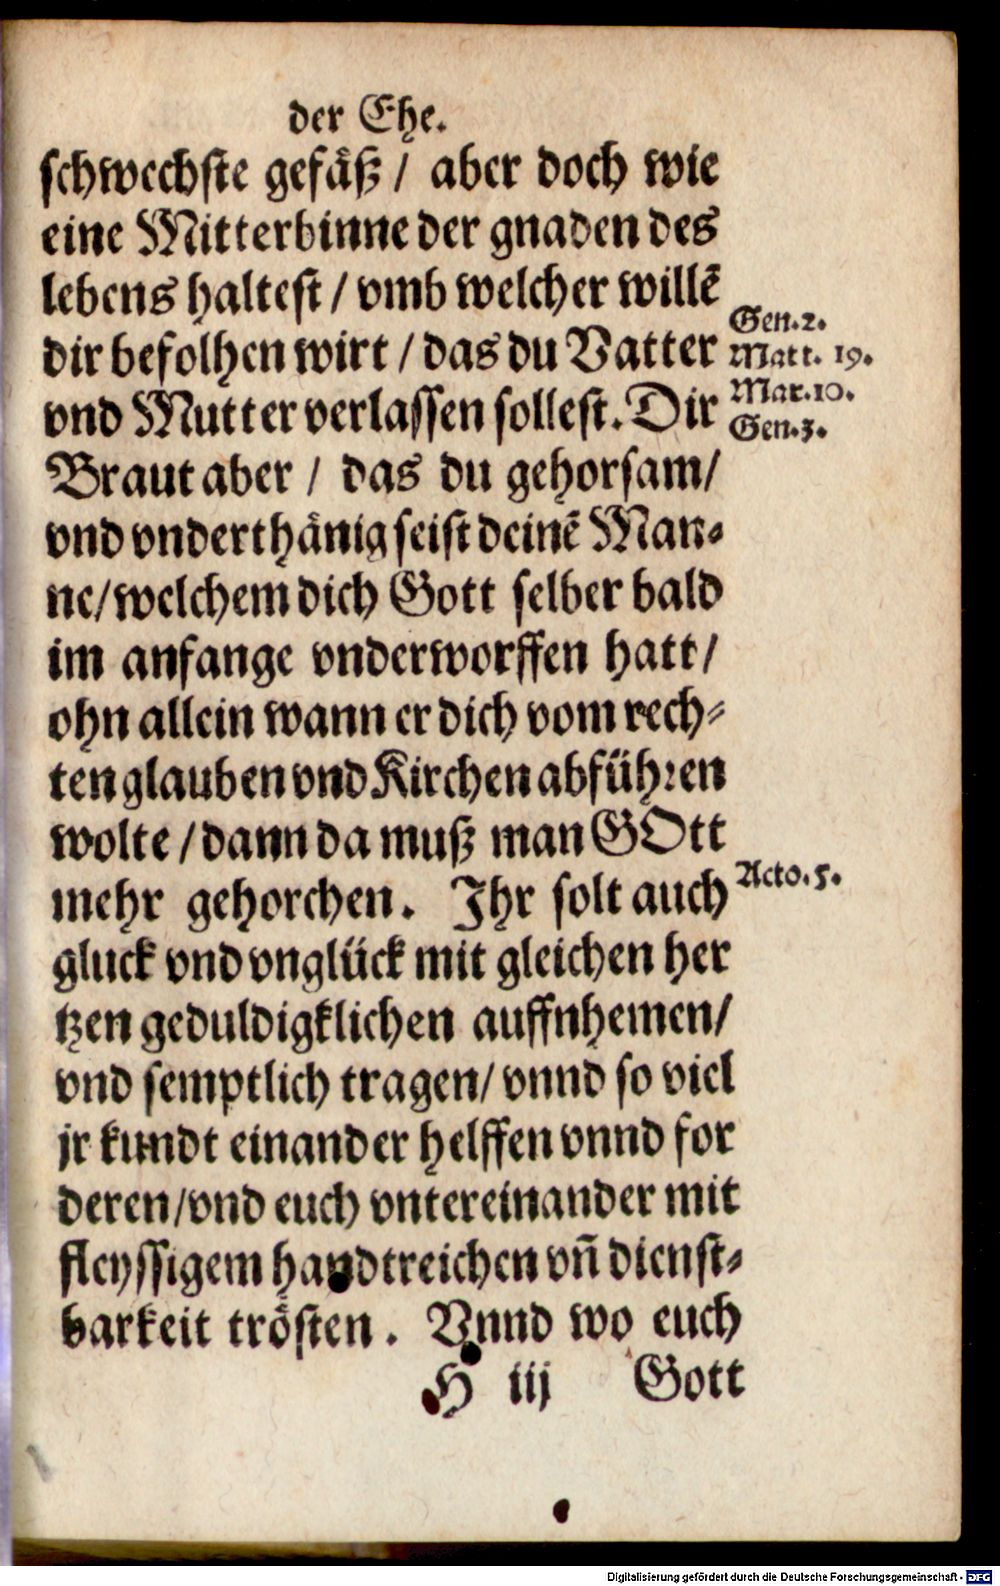 der Ehe.
schwechste gefäß / aber doch wie
eine Mitterbinne der gnaden des
lebens haltest / vmb welcher willē
dir befolhen wirt / das du Vatter
vnd Mutter verlassen sollest. Dir
Braut aber / das du gehorsam/
vnd vnderthänig seist deinē Man-
ne/welchem dich Gott selber bald
im anfange vnderworffen hatt/
ohn allein wann er dich vom rech-
ten glauben vnd Kirchen abführen
wolte / dann da muß man GOtt
mehr gehorchen. Ihr solt auch
gluck vnd vnglück mit gleichen her
tzen geduldigklichen auffnhemen/
vnd semptlich tragen/ vnnd so viel
jr kundt einander helffen vnnd for
deren/vnd euch vntereinander mit
fleyssigem handtreichen vñ dienst-
barkeit trösten. Vnnd wo euch
H iij Gott
Gen.2.
Matt. 19.
Mar.10.
Gen.3.
Acto.5.
Digitalisierung gefördert durch die Deutsche Forschungsgemeinschaft - DFG